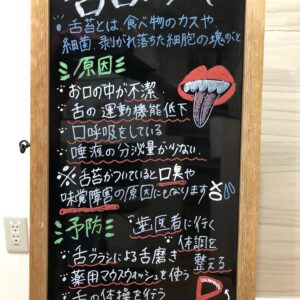 舌苔とは、食べ物のカスや、
細菌、剥がれ落ちた細胞の塊のこと
原因
・お口の中が不潔
・舌の運動機能低下
・口呼吸をしている
・唾液の分泌量が少ない
※舌苔がついていると口臭や
味覚障害の原因にもなります
予防
・歯医者に行く
・体調を
整える
・舌ブラシによる舌磨き
・薬用マウスウォッシュを使う
・舌の体操を行う